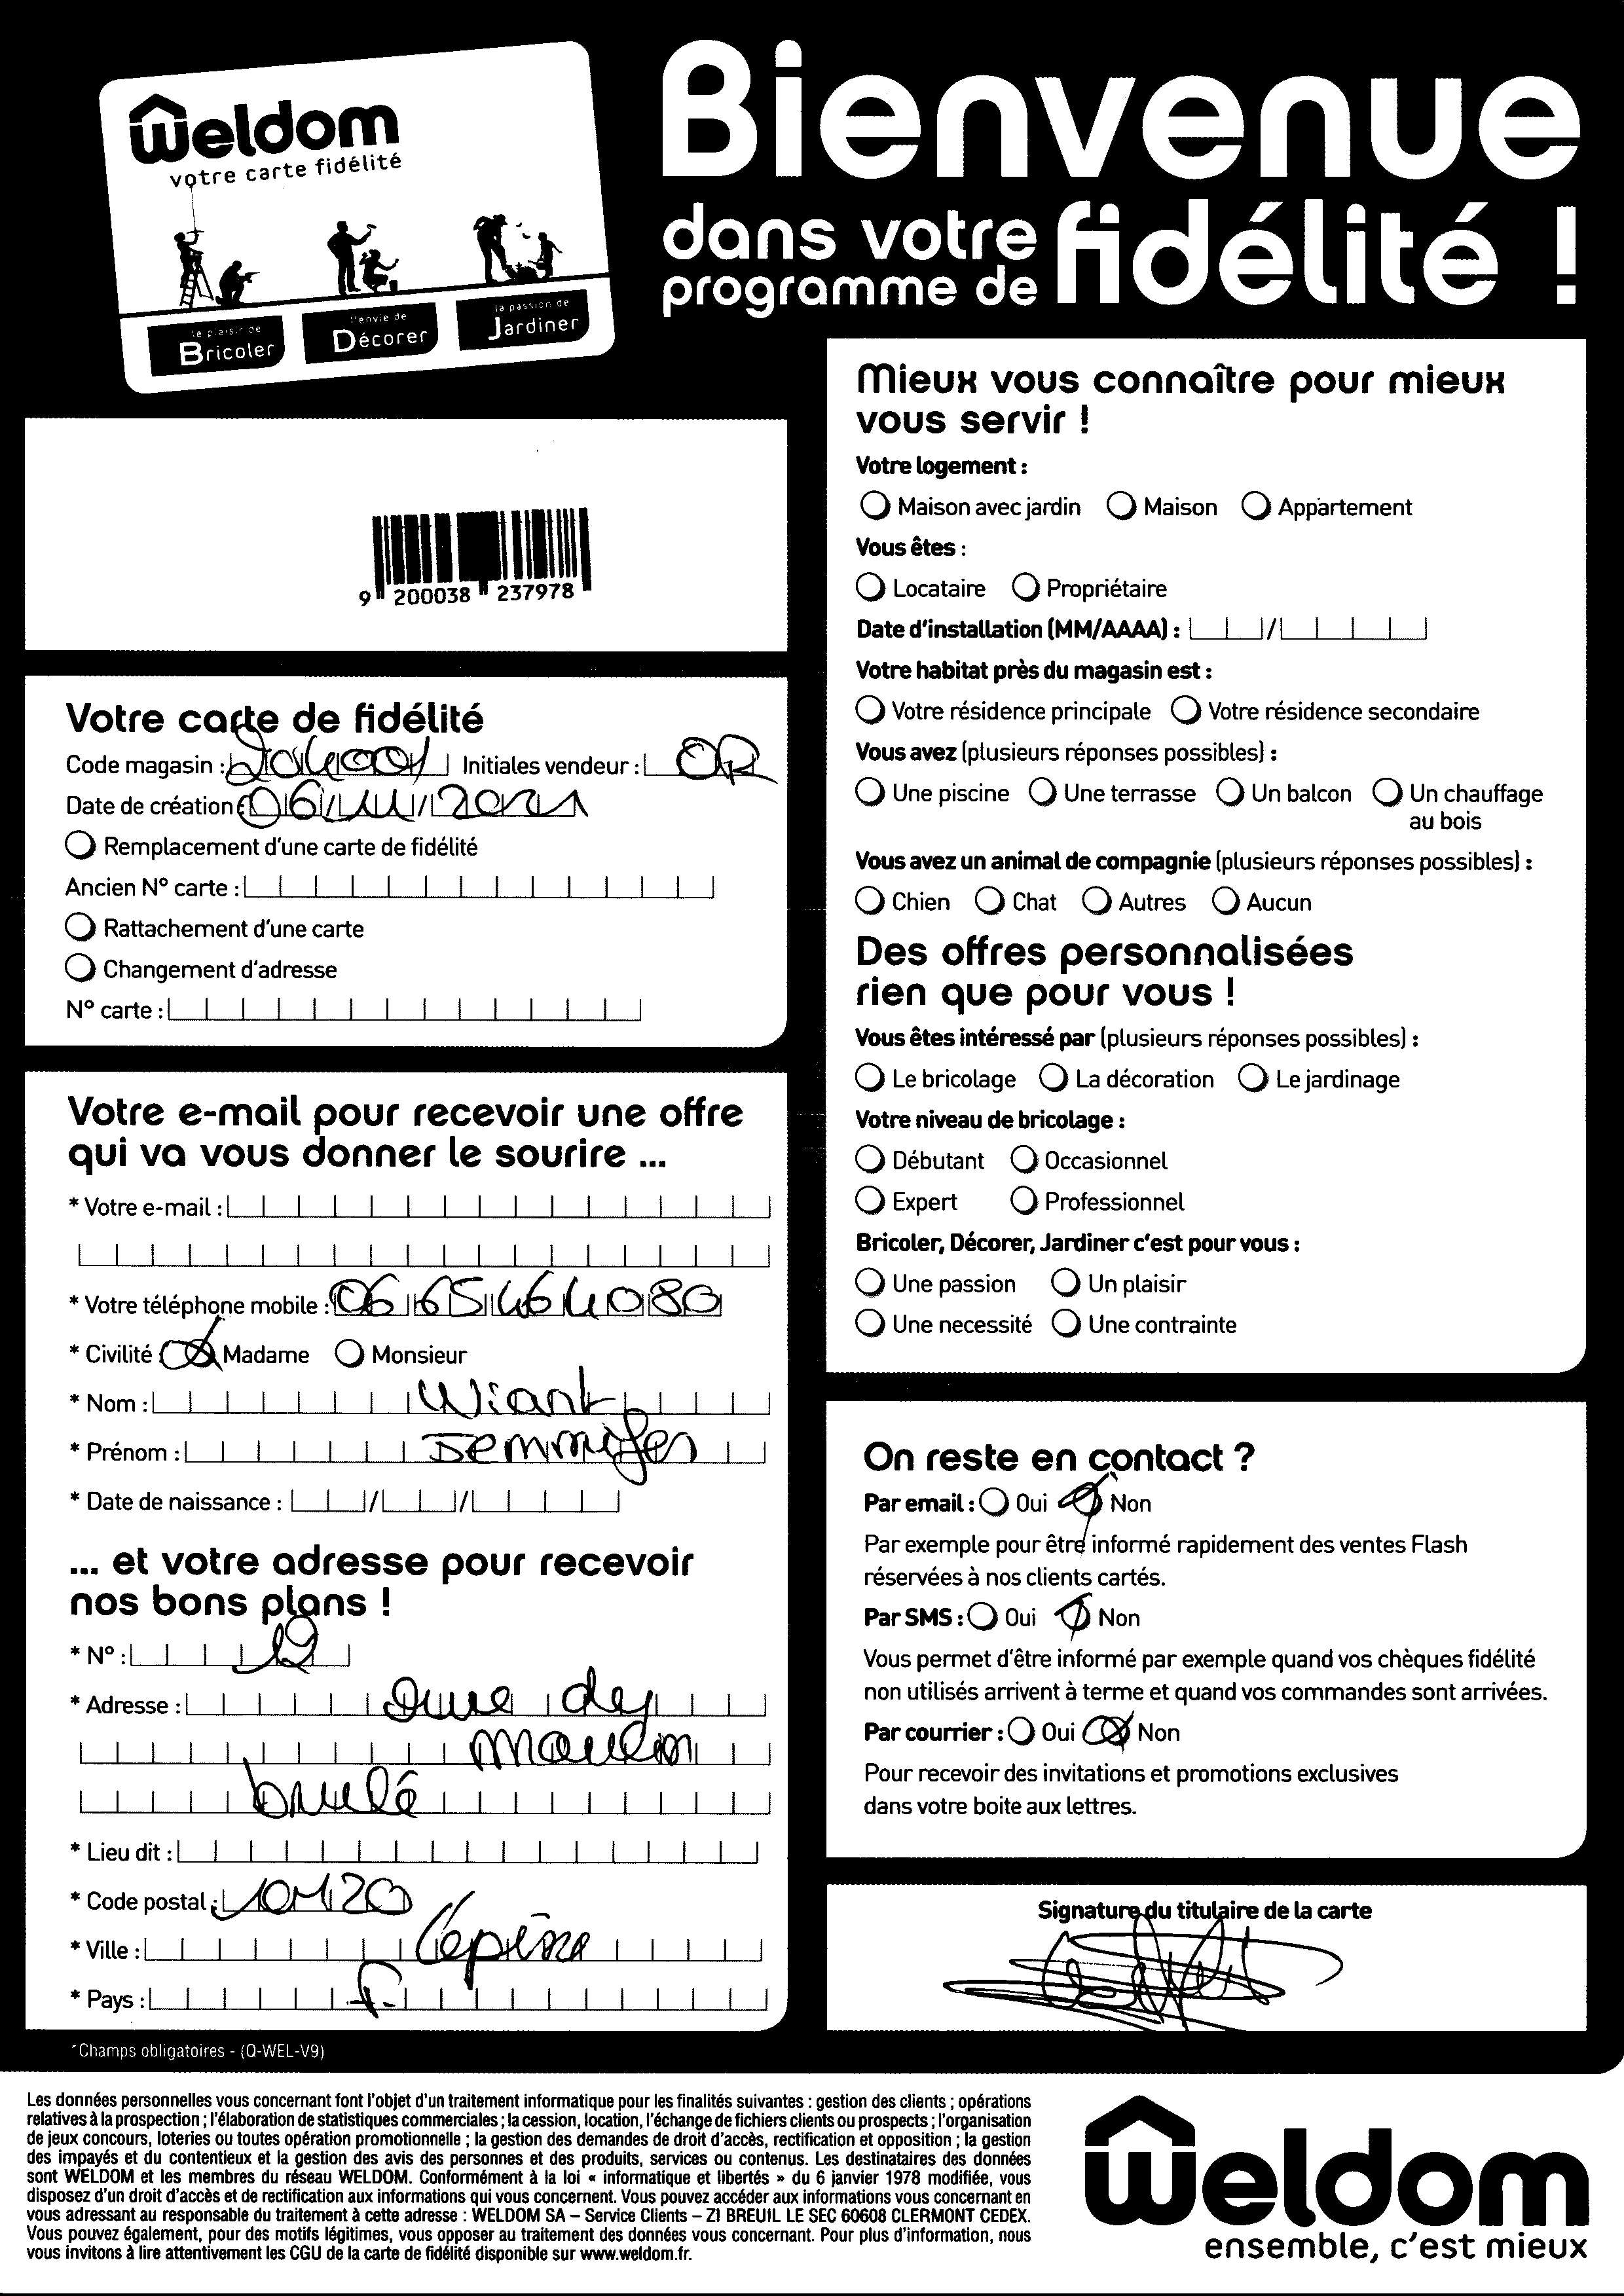 Weldom
votre carte fidélité
le plaisir de
Bricoler
l'envie de
Décorer
la passion de
Jardiner
Bienvenue
dans votre
programme de fidélité !
9 200038 237978
Votre carte de fidélité
Code magasin : Initiales vendeur : OR
Date de création : 06/ /2021
Remplacement d'une carte de fidélité
Ancien N° carte :
Rattachement d'une carte
Changement d'adresse
N° carte :
Votre e-mail pour recevoir une offre
qui va vous donner le sourire ...
* Votre e-mail :
* Votre téléphone mobile : 0665464080
* Civilité Madame Monsieur
* Nom : Wiant
* Prénom : Jennnifer
* Date de naissance : / /
... et votre adresse pour recevoir
nos bons plans !
* N° : 19
* Adresse : rue du
moulin
brulé
* Lieu dit :
* Code postal : 10120
* Ville : l'epine
* Pays : F.
*Champs obligatoires - (Q-WEL-V9)
Mieux vous connaître pour mieux
vous servir !
Votre logement :
Maison avec jardin Maison Appartement
Vous êtes :
Locataire Propriétaire
Date d'installation (MM/AAAA) : /
Votre habitat près du magasin est :
Votre résidence principale Votre résidence secondaire
Vous avez (plusieurs réponses possibles) :
Une piscine Une terrasse Un balcon Un chauffage
au bois
Vous avez un animal de compagnie (plusieurs réponses possibles) :
Chien Chat Autres Aucun
Des offres personnalisées
rien que pour vous !
Vous êtes intéressé par (plusieurs réponses possibles) :
Le bricolage La décoration Le jardinage
Votre niveau de bricolage :
Débutant Occasionnel
Expert Professionnel
Bricoler, Décorer, Jardiner c'est pour vous :
Une passion Un plaisir
Une necessité Une contrainte
On reste en contact ?
Par email : Oui Non
Par exemple pour être informé rapidement des ventes Flash
réservées à nos clients cartés.
Par SMS : Oui Non
Vous permet d'être informé par exemple quand vos chèques fidélité
non utilisés arrivent à terme et quand vos commandes sont arrivées.
Par courrier : Oui Non
Pour recevoir des invitations et promotions exclusives
dans votre boite aux lettres.
Signature du titulaire de la carte
Les données personnelles vous concernant font l'objet d'un traitement informatique pour les finalités suivantes : gestion des clients ; opérations
relatives à la prospection ; l'élaboration de statistiques commerciales ; la cession, location, l'échange de fichiers clients ou prospects ; l'organisation
de jeux concours, loteries ou toutes opération promotionnelle ; la gestion des demandes de droit d'accès, rectification et opposition ; la gestion
des impayés et du contentieux et la gestion des avis des personnes et des produits, services ou contenus. Les destinataires des données
sont WELDOM et les membres du réseau WELDOM. Conformément à la loi « informatique et libertés » du 6 janvier 1978 modifiée, vous
disposez d'un droit d'accès et de rectification aux informations qui vous concernent. Vous pouvez accéder aux informations vous concernant en
vous adressant au responsable du traitement à cette adresse : WELDOM SA – Service Clients – ZI BREUIL LE SEC 60608 CLERMONT CEDEX.
Vous pouvez également, pour des motifs légitimes, vous opposer au traitement des données vous concernant. Pour plus d'information, nous
vous invitons à lire attentivement les CGU de la carte de fidélité disponible sur www.weldom.fr.
Weldom
ensemble, c'est mieux